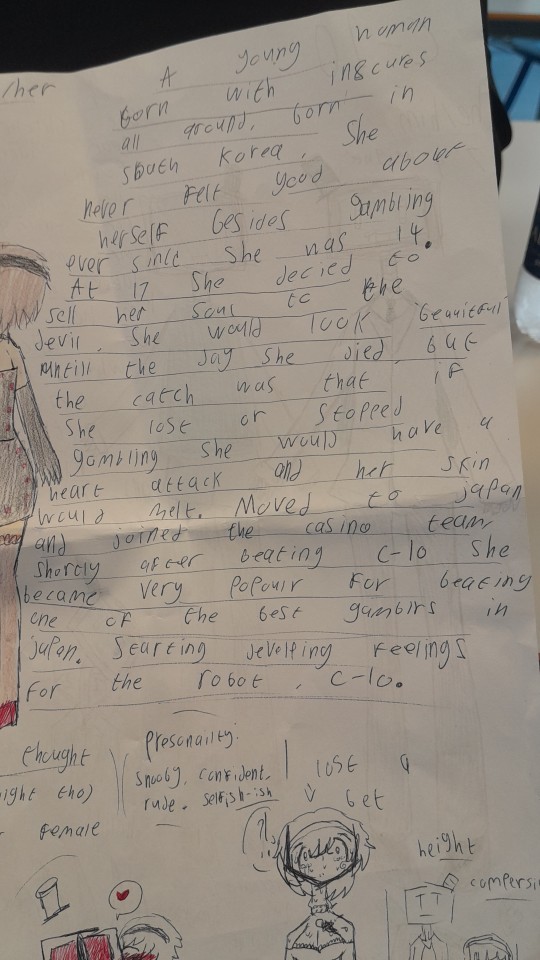 /her
A young woman
born with inscures
all around. born in
south korea. She
never felt good about
herself besides gambling
ever since she was 14.
At 17 She decied to
sell her soul to the
devil. She would look beauitful
untill the day she died. but
the catch was that if
She lost or stopped
gambling she would have a
heart attack and her skin
would melt. Moved to japan
and joined the casino team,
shortly after beating C-10 She
became very popoulr for beating
one of the best gamblrs in
japan. Starting develping feelings
for the robot, C-10.
thought
ight tho)
female
Presonailty:
snooby, confident,
rude, selfish-ish
lost a
bet
?!
height
compersi